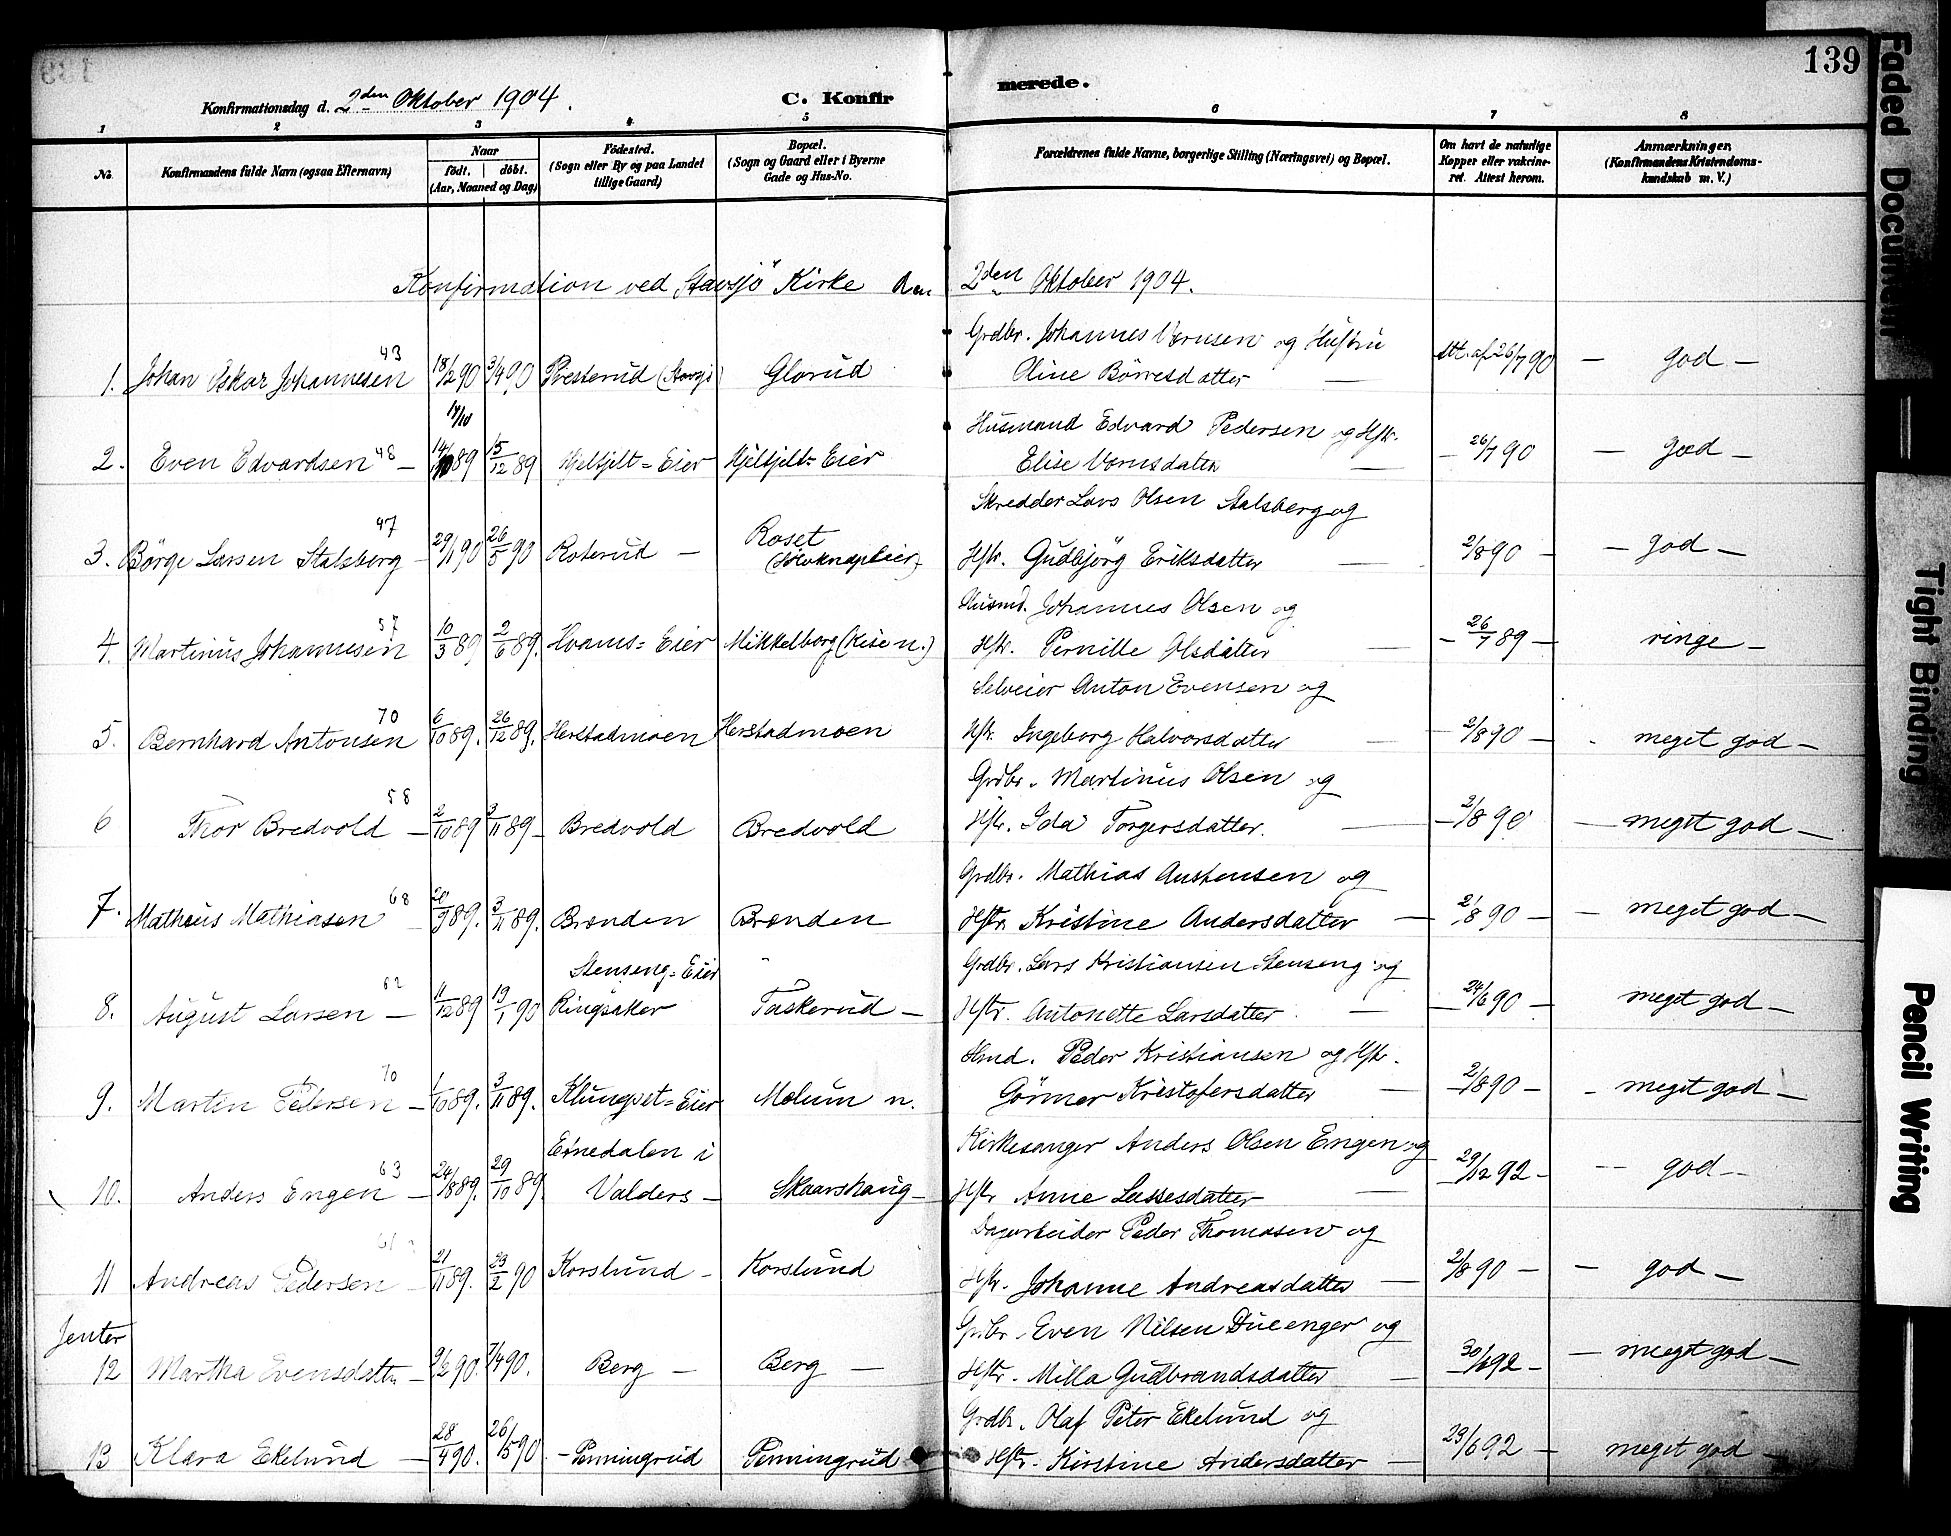 139
Konfirmationsdag d. 2den Oktober 1904.
C. Konfir
merede.
1 2 3 4 5 6 7 8
No.
Konfirmandens fulde Navn (ogsaa Efternavn)
Naar
født. døbt.
(Aar, Maaned og Dag)
Fødested.
(Sogn eller By og paa Landet
tillige Gaard)
Bopæl.
(Sogn og Gaard eller i Byerne
Gade og Hus-No.
Forældrenes fulde Navne, borgerlige Stilling (Næringsvei) og Bopæl.
Om havt de naturlige
Kopper eller vakcine-
ret. Attest herom.
Anmærkninger.
(Konfirmandens Kristendoms-
kundskab m. V.)
Konfirmation ved Stavsjö Kirke den 2den Oktober 1904.
43 Grdbr. Johannes Vernsen og Hustru
1. Johan Oskar Johannesen 18/2 90 3/4 90 Presterud (Stavsjö) Glorud Oline Börresdatter — Att. af 26/7 90 — god —
14/10 Husmand Edvard Pedersen og Hstr.
2. Even Edvardsen 48 — 89 15/12 89 Hjelfjelt=Eier Hjelfjelt=Eier Elise — 26/7 90 — god —
47 Skredder Lars Olsen Stalsberg og
3. Börge Larsen Stalsberg — 29/1 90 26/5 90 Roterud — Roset Hstr. Gudbjörg Eriksdatter — 2/8 90 — — god —
57 Husmd. Johannes Olsen og
4. Martinus Johannesen 10/3 89 2/6 89. Hvams=Eier Mikkelborg (Kise n.) Hstr. Pernille Olsdatter — — 26/7 89 — ringe —
70 Selveier Anton Evensen og
5. Bernhard Antonsen 6/10 89. 26/12 89. Herstadmoen Herstadmoen Hstr. Ingeborg Halvorsdatter — 2/8 90 — meget god —
58 Grdbr. Martinus Olsen og
6 Thor Bredvold — 2/10 89 3/11 89 — Bredvold Bredvold Hstr. Ida Torgersdatter. — — 2/8 90 — meget god —
68 Grdbr. Mathias Austensen og
7. Matheus Mathiasen 20/9 89. 3/11 89. Brenden Brenden Hstr. Kristine Andersdatter — 2/8 90 — — meget god —
62 Stenseng=Eier Grdbr. Lars Kristiansen Stenseng og
8. August Larsen — 11/12 89 19/1 90 Ringsaker Taskerud — Hstr. Antonette Larsdatter. — — 24/6 90 — meget god —
70 Hmd. Peder Kristiansen og Hstr.
9. Martin Pedersen — 1/10 89. 3/11 89. Klungvet=Eier Melum n. Görmor Kristofersdatter — 2/8 90 — — meget god —
63 i Kirkesanger Anders Olsen Engen og
10. Anders Engen — 24/8 89. 29/10 89 Valders — Skaarshaug — Hstr Anne Lassesdatter — 29/12 92 — — god —
Dagarbeider Peder Thomasen og
11 Andreas Pedersen — 21/11 89. 23/2 90 Korslund — Korslund Hstr. Johanne Andreasdatter — 2/8 90 — — god —
Jenter Grdbr. Even Nilsen Dueenger og
12 Martha Evensdatter — 9/2 90. 7/4 90. Berg — Berg — Hstr. Milla Gudbrandsdatter — 30/6 92 — — meget god —
Grdbr. Olaf Peter Ekelund og
13 Klara Ekelund — 28/4 90. 26/5 90 — Penningrud Penningrud Hstr. Kirstine Andersdatter — 29/6 92 — meget god —
Faded Document
Tight Binding
Pencil Writing